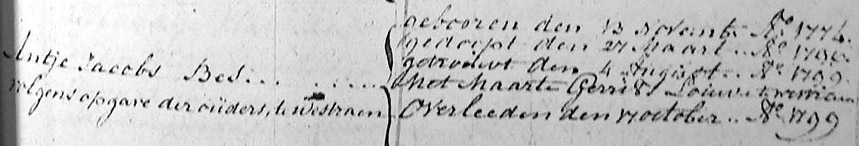 gebooren den 13 Novemb: Aº. 1774.
gedoopt den 27 Maart.. Aº. 1796.
getrouwt den 4 August.. Aº. 1799.
Antje Jacobs Bes.. . . . . . . .
met Maarte Gerrits
volgens opgave der ouders, te westzaen
Overleeden den 17 october.. Aº. 1799